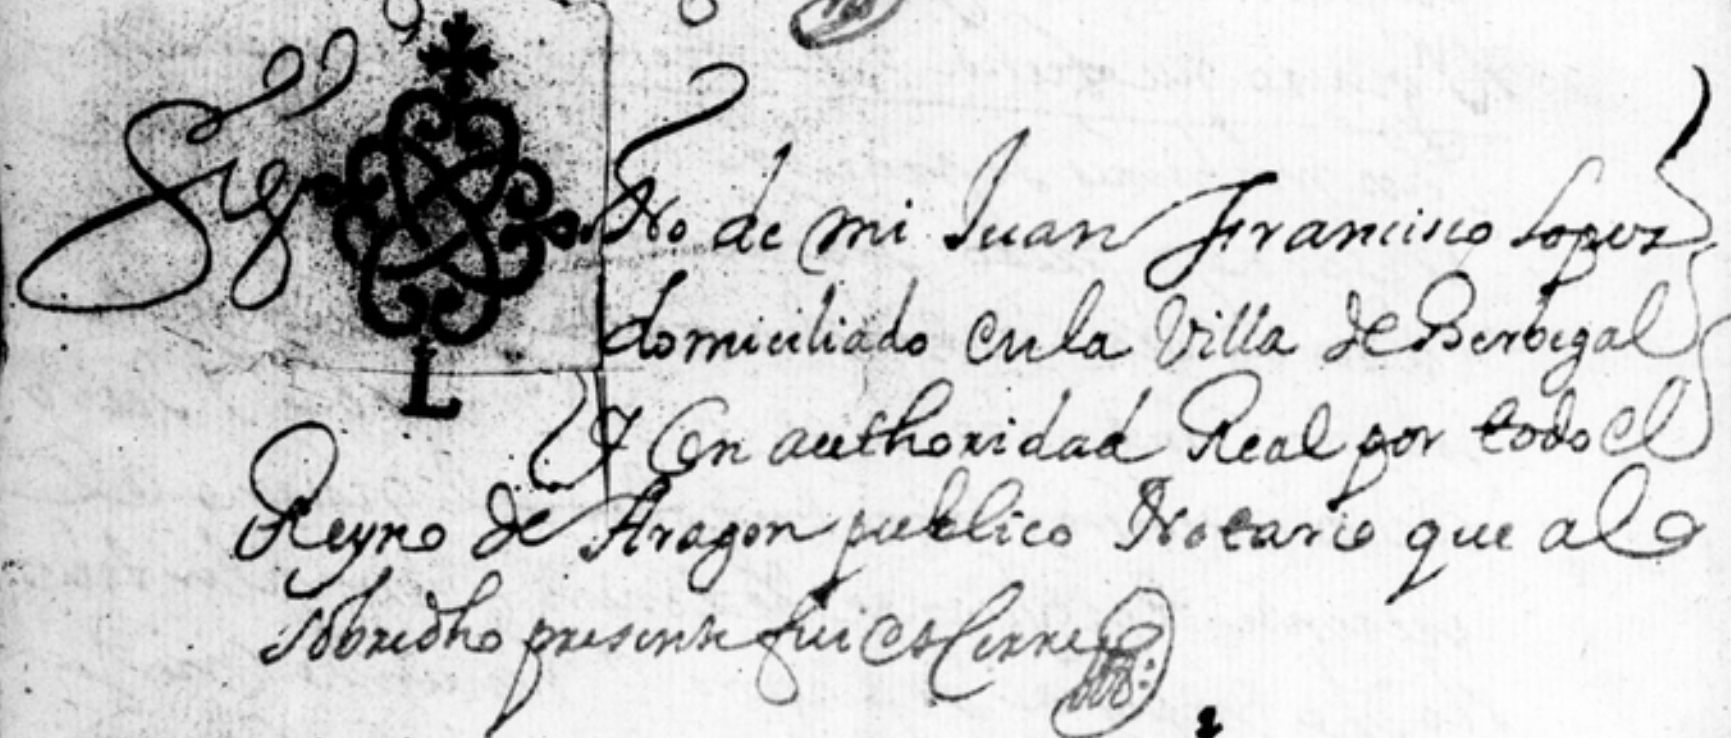 Sig No de mi Juan Francisco Lopez
domiciliado en la Villa de Berbegal
L
Y Con authoridad Real por todo el
Reyno de Aragon publico Notario que a lo
sobredho presente fui et Cerre